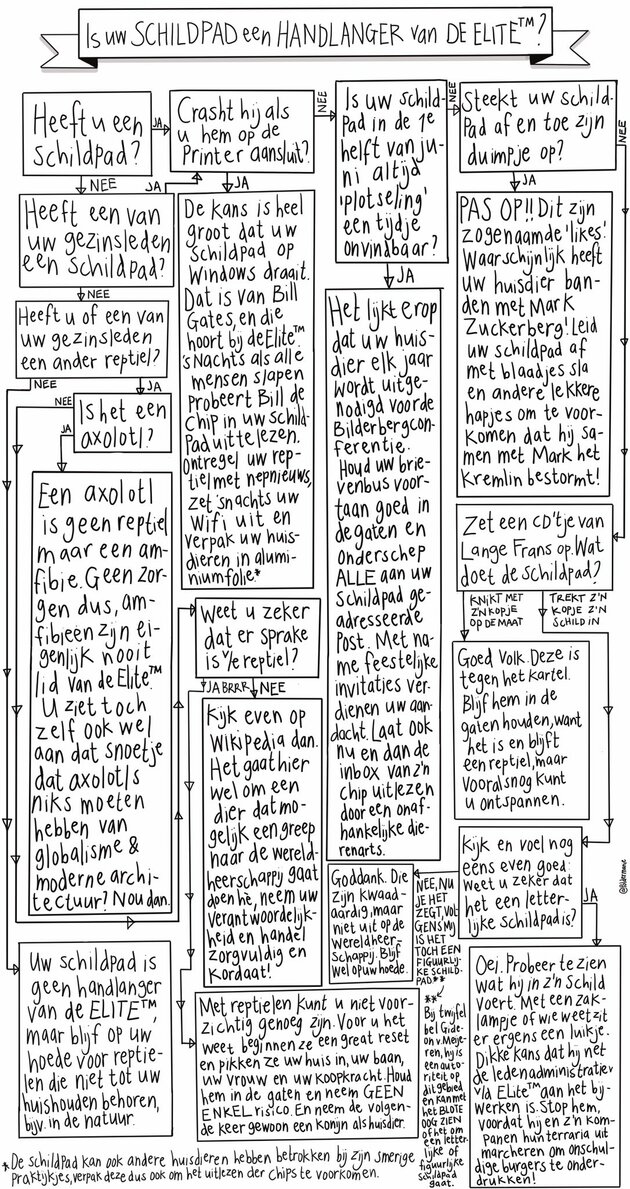 Is uw SCHILDPAD een HANDLANGER van DE ELITE™?
Heeft u een
schildpad?
JA
NEE
Crasht hij als
u hem op de
Printer aansluit?
NEE
JA
Is uw schild-
Pad in de 1e
helft van ju-
ni altijd
'plotseling'
een tijdje
onvindbaar?
NEE
JA
Steekt uw schild-
Pad af en toe zijn
duimpje op?
NEE
JA
Heeft een van
uw gezinsleden
een schildpad?
JA
NEE
Heeft u of een van
uw gezinsleden
een ander reptiel?
NEE
JA
Is het een
axolotl?
NEE
JA
Een axolotl
is geen reptiel
maar een am-
fibie. Geen zor-
gen dus, am-
fibieën zijn ei-
genlijk nooit
lid van de Elite™
U ziet toch
zelf ook wel
aan dat snoetje
dat axolotls
niks moeten
hebben van
globalisme &
moderne archi-
tectuur? Nou dan.
De kans is heel
groot dat uw
Schildpad op
Windows draait.
Dat is van Bill
Gates, en die
hoort bij de Elite™
's Nachts als alle
mensen slapen
Probeert Bill de
Chip in uw schild-
Pad uit te lezen.
Ontregel uw rep-
tiel met nepnieuws,
zet 's nachts uw
Wifi uit en
verpak uw huis-
dieren in alumi-
niumfolie*
Het lijkt erop
dat uw huis-
dier elk jaar
wordt uitge-
nodigd voor de
Bilderbergcon-
ferentie.
Houd uw brie-
venbus voor-
taan goed in
de gaten en
onderschep
ALLE aan uw
Schildpad ge-
adresseerde
Post. Met na-
me feestelijke
invitaties ver-
dienen uw aan-
dacht. Laat ook
nu en dan de
inbox van z'n
chip uitlezen
door een onaf-
hankelijke die-
renarts.
PAS OP!! Dit zijn
zogenaamde 'likes'.
Waarschijnlijk heeft
uw huisdier ban-
den met Mark
Zuckerberg! Leid
uw schildpad af
met blaadjes sla
en andere lekkere
hapjes om te voor-
komen dat hij sa-
men met Mark het
Kremlin bestormt!
Zet een CD'tje van
Lange Frans op. Wat
doet de schildpad?
KNIKT MET
Z'N KOPJE
OP DE MAAT
TREKT Z'N
KOPJE Z'N
SCHILD IN
Goed Volk. Deze is
tegen het kartel.
Blijf hem in de
gaten houden, want
het is en blijft
een reptiel, maar
vooralsnog kunt
u ontspannen.
Weet u zeker
dat er sprake
is v/e reptiel?
JA BRRR
NEE
Kijk even op
Wikipedia dan.
Het gaat hier
wel om een
dier dat mo-
gelijk een greep
naar de wereld-
heerschappij gaat
doen hè, neem uw
verantwoordelijk-
heid en handel
zorgvuldig en
Kordaat!
Kijk en voel nog
eens even goed:
weet u zeker dat
het een letter-
lijke schildpad is?
JA
NEE, NU
JE HET
ZEGT, VOL-
GENS MIJ
IS HET
TOCH EEN
FIGUURLIJ-
KE SCHILD-
PAD**
Goddank. Die
zijn kwaad-
aardig, maar
niet uit op de
wereldheer-
schappij. Blijf
wel op uw hoede.
Oei. Probeer te zien
wat hij in z'n Schild
Voert. Met een zak-
lampje of wie weet zit
er ergens een luikje.
Dikke kans dat hij net
de ledenadministratie
v/d ELite™ aan het bij-
werken is. Stop hem,
voordat hij en z'n kom-
panen hun terraria uit
marcheren om onschul-
dige burgers te onder-
drukken!
**
Bij twijfel
bel Gide-
on v. Meije-
ren, hij is
een auto-
riteit op
dit gebied
en kan met
het BLOTE
OOG ZIEN
of het om
een letter-
lijke of
figuurlijke
Schildpad
gaat.
Uw schildpad is
geen handlanger
van de ELITE™,
maar blijf op uw
hoede voor reptie-
len die niet tot uw
huishouden behoren,
bijv. in de natuur.
Met reptielen kunt u niet voor-
zichtig genoeg zijn. Voor u het
weet beginnen ze een great reset
en pikken ze uw huis in, uw baan,
uw vrouw en uw koopkracht. Houd
hem in de gaten en neem GEEN
ENKEL risico. En neem de volgen-
de keer gewoon een konijn als huisdier.
*De schildpad kan ook andere huisdieren hebben betrokken bij zijn smerige
Praktijkjes, verpak deze dus ook om het uitlezen der chips te voorkomen.